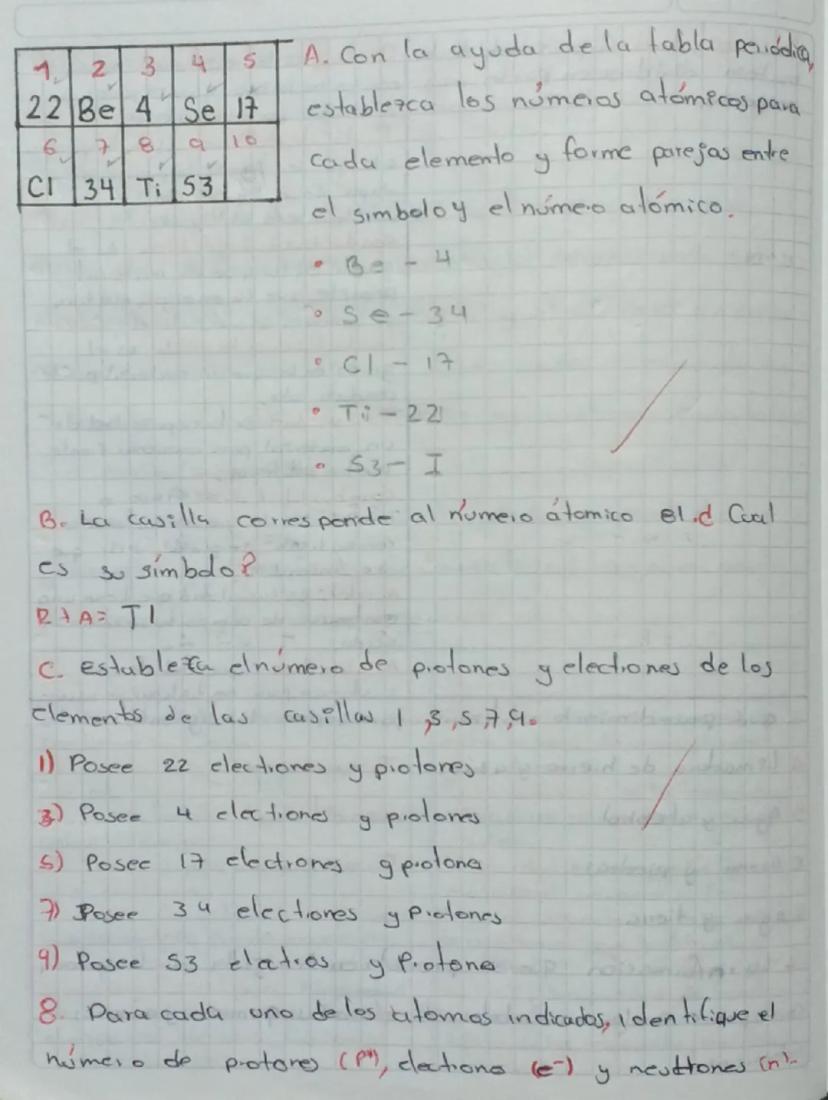 1 2 3 4 5
22 Be 4 Se 17
6 7 8 9 10
Cl 34 Ti 53
A. Con la ayuda de la tabla periódica,
establezca los números atómicos para
cada elemento y forme parejas entre
el simbolo y el número atómico.
• Be - 4
• Se - 34
• Cl - 17
• Ti - 22
• 53 - I
B. La casilla corresponde al número átomico 81.¿ Cual
es su símbolo?
R/A= Tl
C. establezca el número de protones y electrones de los
elementos de las casillas 1,3,5,7,9.
1) Posee 22 electrones y protones
3) Posee 4 electrones y protones
5) Posee 17 electrones y protone
7) Posee 34 electrones y Protones
9) Posee 53 eletros y Protone
8. Para cada uno de los atomos indicados, identifique el
número de protones (p+), electrone (e-) y neutrones (n).